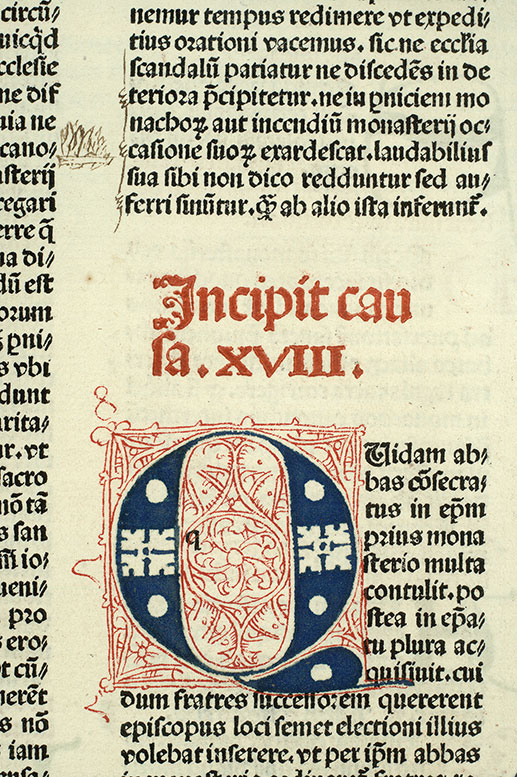 circū/
uicq̄d
cclesie
ne dif
uia ne
cano/
asterij
regari
erre q̄
ua di/
dū est
orum
ꝑni/
s vbi
dunt
arita/
ur. vt
sacro
mō tā
s san
io/
ueni/
pro
s ero/
t cū/
nerēt
s nō
iam
nemur tempus redimere vt expedi/
tius orationi vacemus. sic ne ecclīa
scandalū patiatur ne discedēs in de
teriora p̄cipitetur. ne in ꝑniciem mo
nachoꝝ aut incendiū monasterij oc/
casione suoꝝ exardescat. laudabilius
sua sibi non dico redduntur sed au/
ferri sinūtur. ꝙ̄ ab alio ista inferunt̄.
Incipit cau
sa. XVIII.
q
Uidam ab/
bas cōsecra/
tus in ep̄m
prius mona
sterio multa
contulit. po
stea in ep̄a/
tu plura ac/
quisiuit. cui
dum fratres successorem quererent
episcopus loci semet electioni illius
volebat inserere. vt per ip̄m abbas